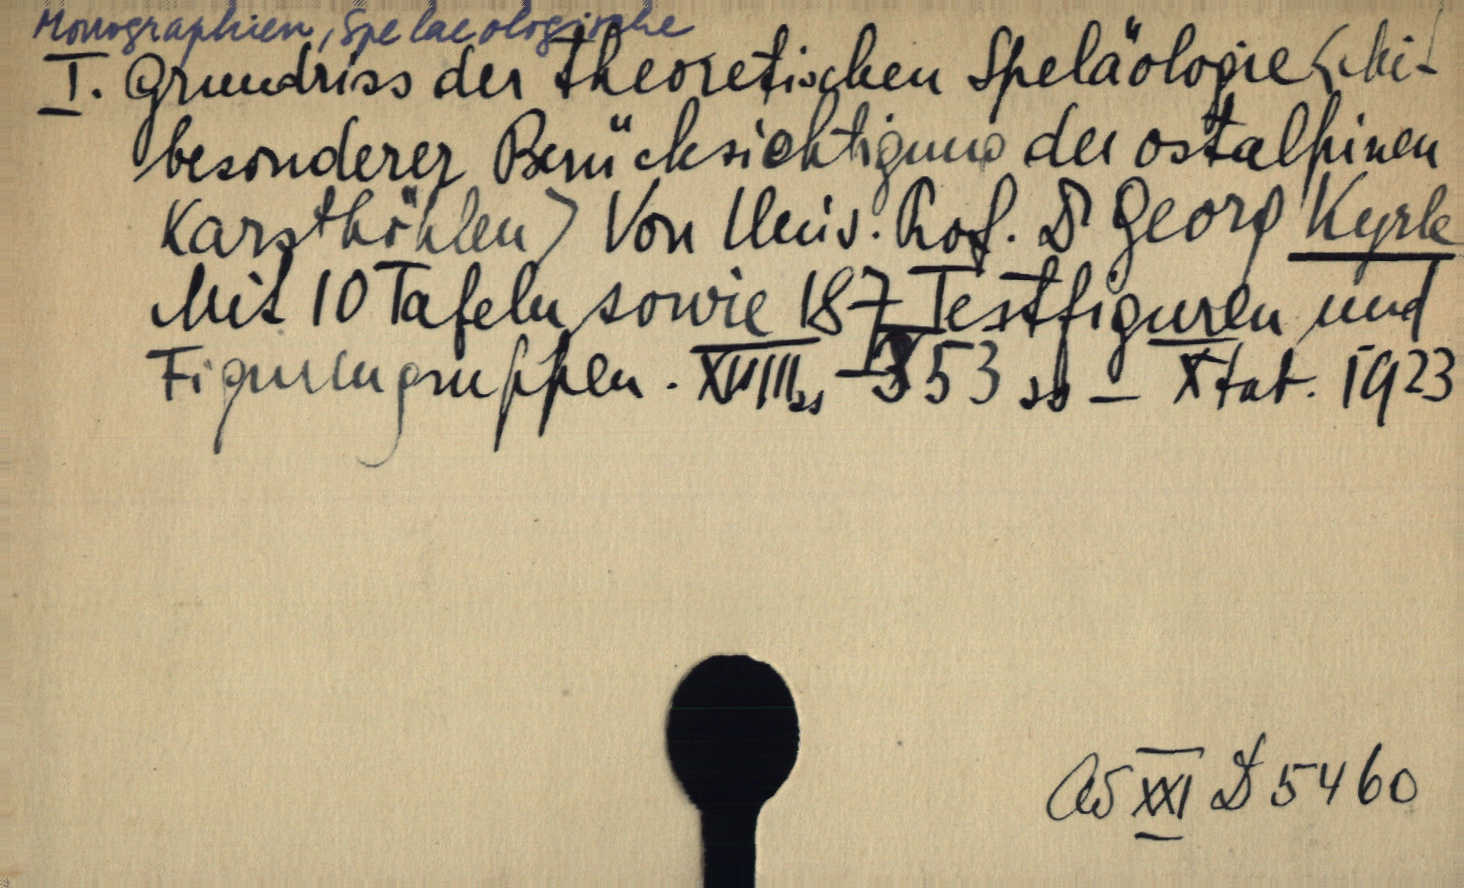 Monographien, Spelaeologische
I. Grundriss der theoretischen Speläologie (Mit
besonderer Berücksichtigung der ostalpinen
Karsthöhlen) Von Univ. Prof. Dr Georg Kyrle
Mit 10 Tafeln sowie 187 Testfiguren und
Figurengruppen. XVIIII ss - 353 ss - X tab. 1923
XXI D 5460